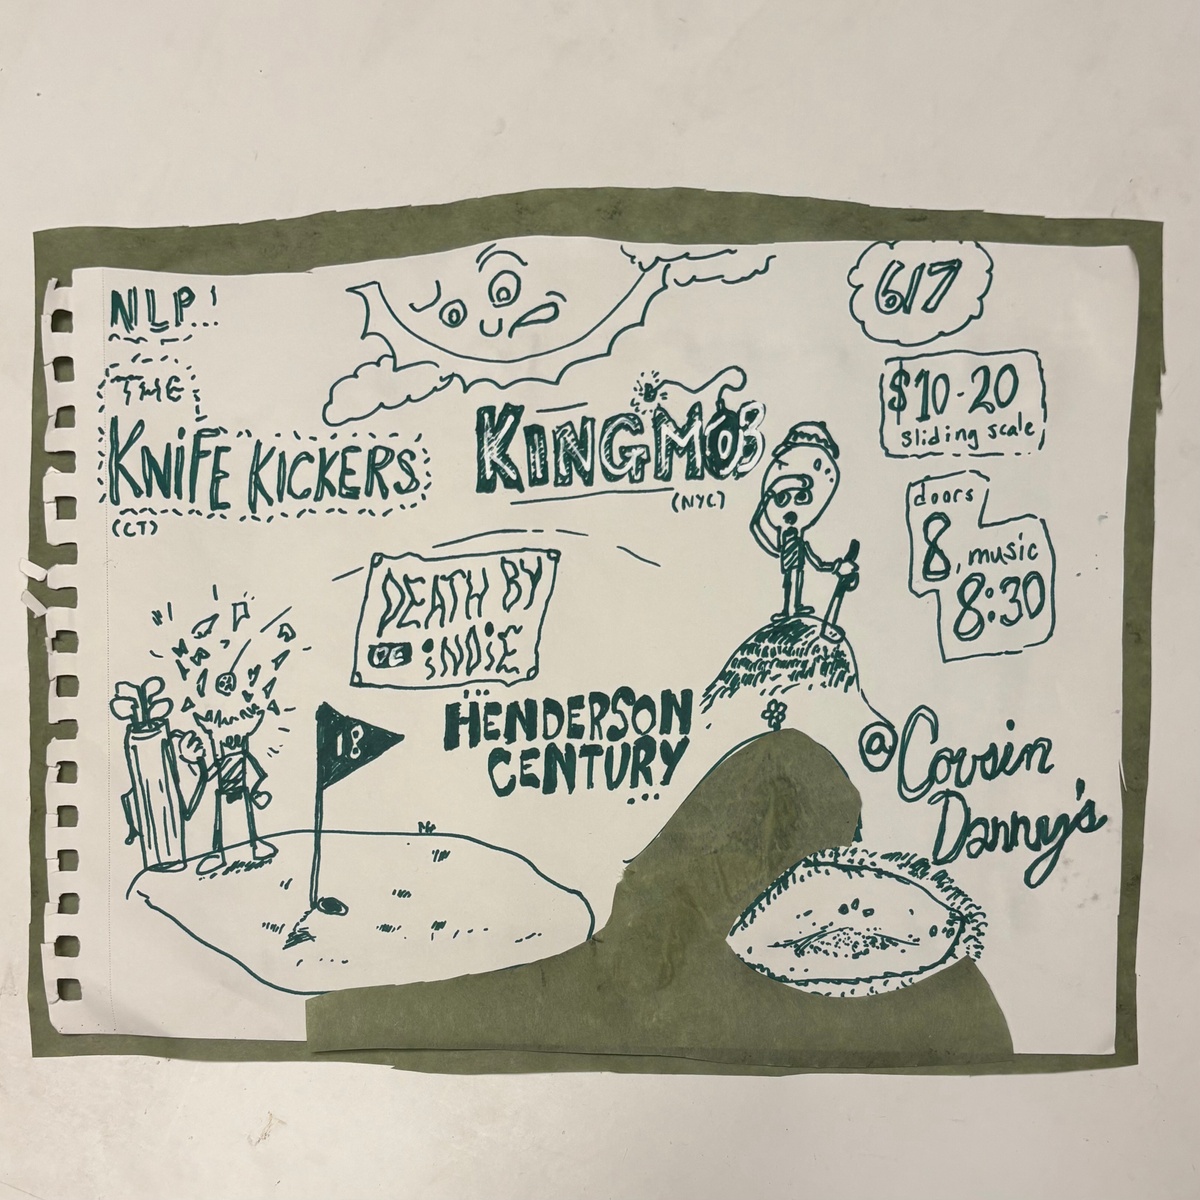 NLP!...
THE
KNIFE KICKERS
(CT)
KING MOB
(NYC)
DEATH BY
INDIE
HENDERSON
CENTURY
...
18
6/7
$10-20
sliding scale
doors
8, music
8:30
@ Cousin
Danny's